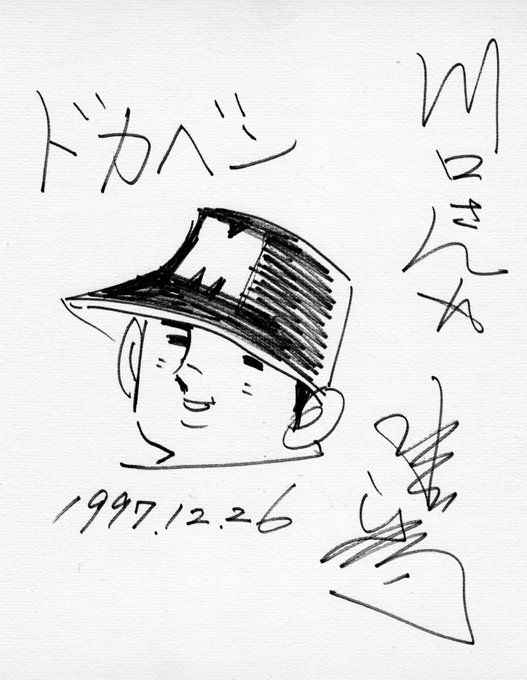 ドカベン
川口さん
1997.12.26